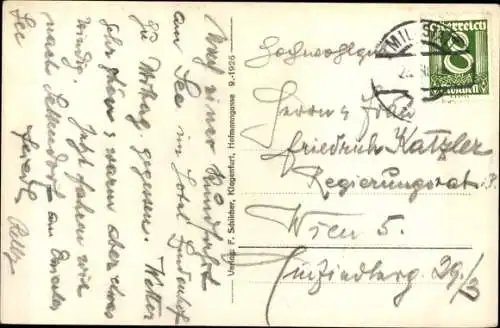 Auf einer Rundfahrt
am See im Hotel Lindenhof
zu Mittag gegessen. Wetter
sehr schön & warm aber etwas
windig. Jetzt fahren wir
nach Seltendorf am
See
Verlag: F. Schilcher, Klagenfurt, Hofmanngasse 9.-1926
MIL
Österreich
8
Groschen
Hochwohlgeb
Herrn & Frau
Friedrich Katzler
Regierungsrat i. P.
Wien 5.
Einsiedlerg 29/